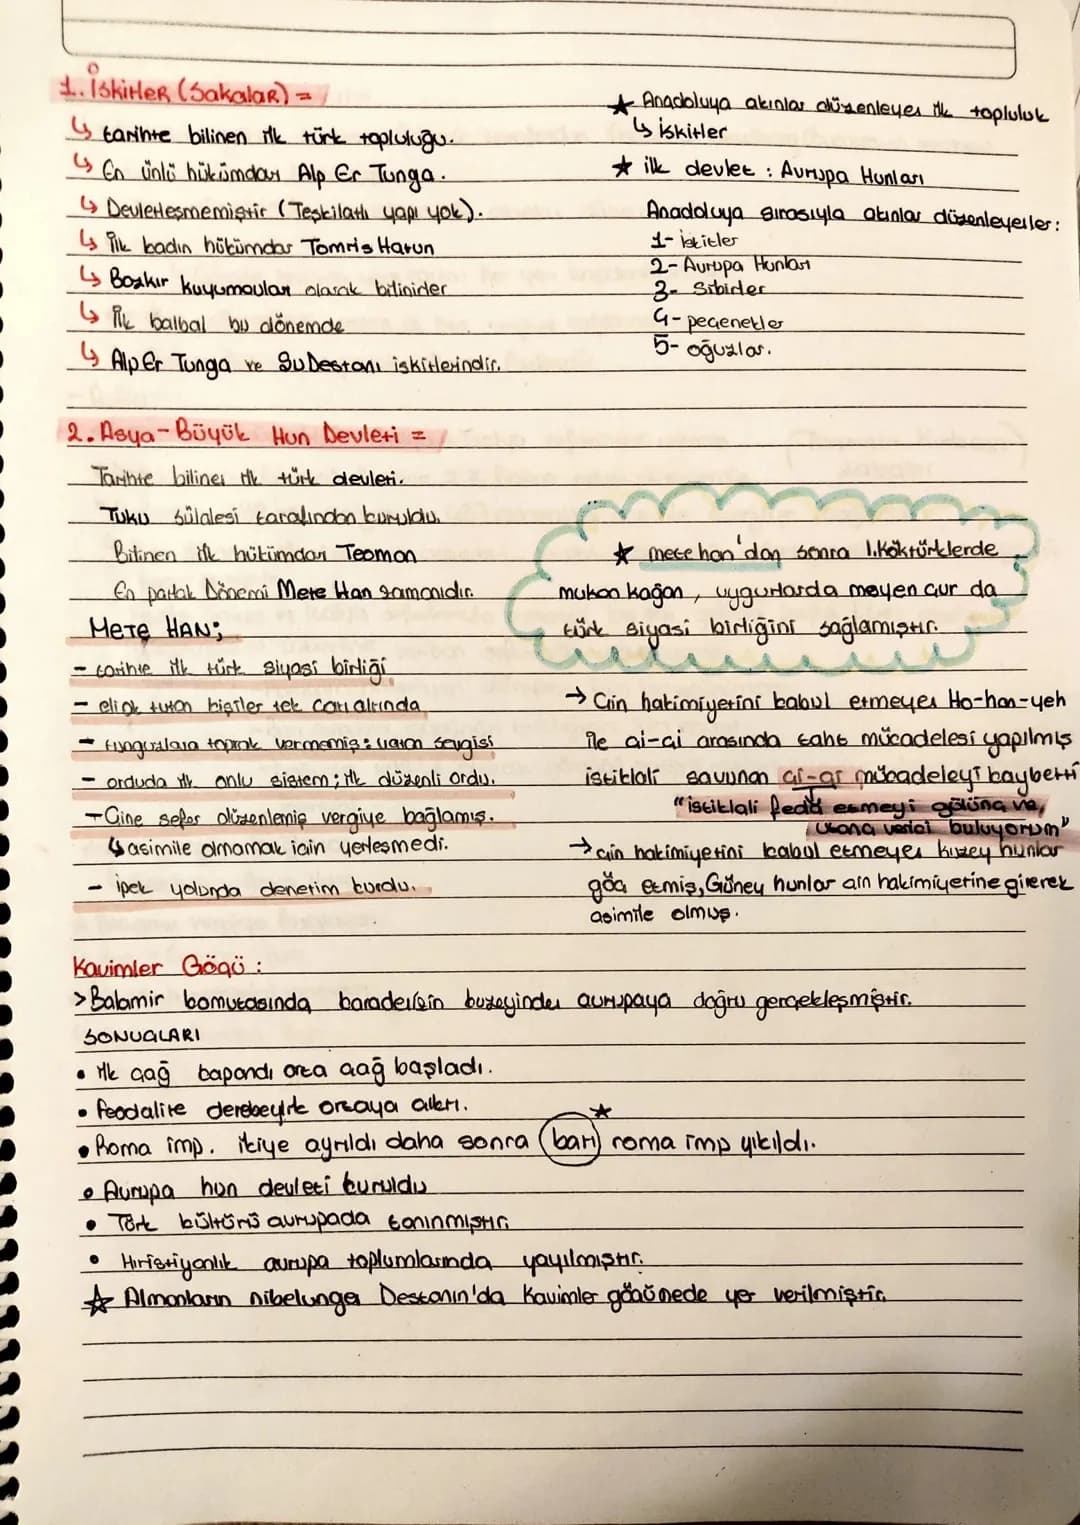 1. İskitler (Sakalar) =
↳ tarihte bilinen ilk türk topluluğu.
↳ En ünlü hükümdarı Alp Er Tunga.
↳ Devletleşmemiştir (Teşkilatlı yapı yok).
↳ İlk kadın hükümdar Tomris Hatun
↳ Bozkır kuyumcuları olarak bilinirler
↳ İlk balbal bu dönemde
↳ Alp Er Tunga ve Şu Destanı iskitlerindir.
★ Anadoluya akınlar düzenleyen ilk topluluk
↳ iskitler
★ ilk devlet : Avrupa Hunları
Anadoluya sırasıyla akınlar düzenleyenler:
1- iskitler
2- Avrupa Hunları
3- Sibirler
4- peçenekler
5- oğuzlar.
2. Asya-Büyük Hun Devleti =
Tarihte bilinen ilk türk devleti.
Tuku sülalesi tarafından kuruldu.
Bilinen ilk hükümdarı Teoman
En parlak Dönemi Mete Han zamanıdır.
Mete HAN;
- tarihte ilk türk siyasi birliği
- eli ok tutan kişiler tek çatı altında
- tunguzlara toprak vermemiş: vatan sevgisi
- orduda ilk onlu sistem; ilk düzenli ordu.
- Çine sefer düzenlemiş vergiye bağlamış.
↳ asimile olmamak için yerleşmedi.
- ipek yolunda denetim kurdu.
★ mete han'dan sonra 1.Köktürklerde
mukan kağan, uygurlarda moyen çur da
türk siyasi birliğini sağlamıştır.
→ Çin hakimiyetini kabul etmeyen Ho-han-yeh
ile çi-çi arasında taht mücadelesi yapılmış
istiklali savunan çi-çi mücadeleyi kaybetti
"istiklali feda etmeyi gülünç ve,
utanç verici buluyorum"
→ çin hakimiyetini kabul etmeyen kuzey hunlar
göç etmiş, Güney hunlar çin hakimiyetine girerek
asimile olmuş.
Kavimler Göçü :
> Balamir komutasında karadenizin kuzeyinden avrupaya doğru gerçekleşmiştir.
SONUÇLARI
• ilk çağ kapandı orta çağ başladı.
• feodalite derebeylik ortaya çıktı.
• Roma imp. ikiye ayrıldı daha sonra (batı) roma imp yıkıldı. ★
• Avrupa hun devleti kuruldu
• Türk kültürü avrupada tanınmıştır
• Hıristiyanlık avrupa toplumlarında yayılmıştır.
★ Almanların nibelungen Destanın'da Kavimler göçünede yer verilmiştir.